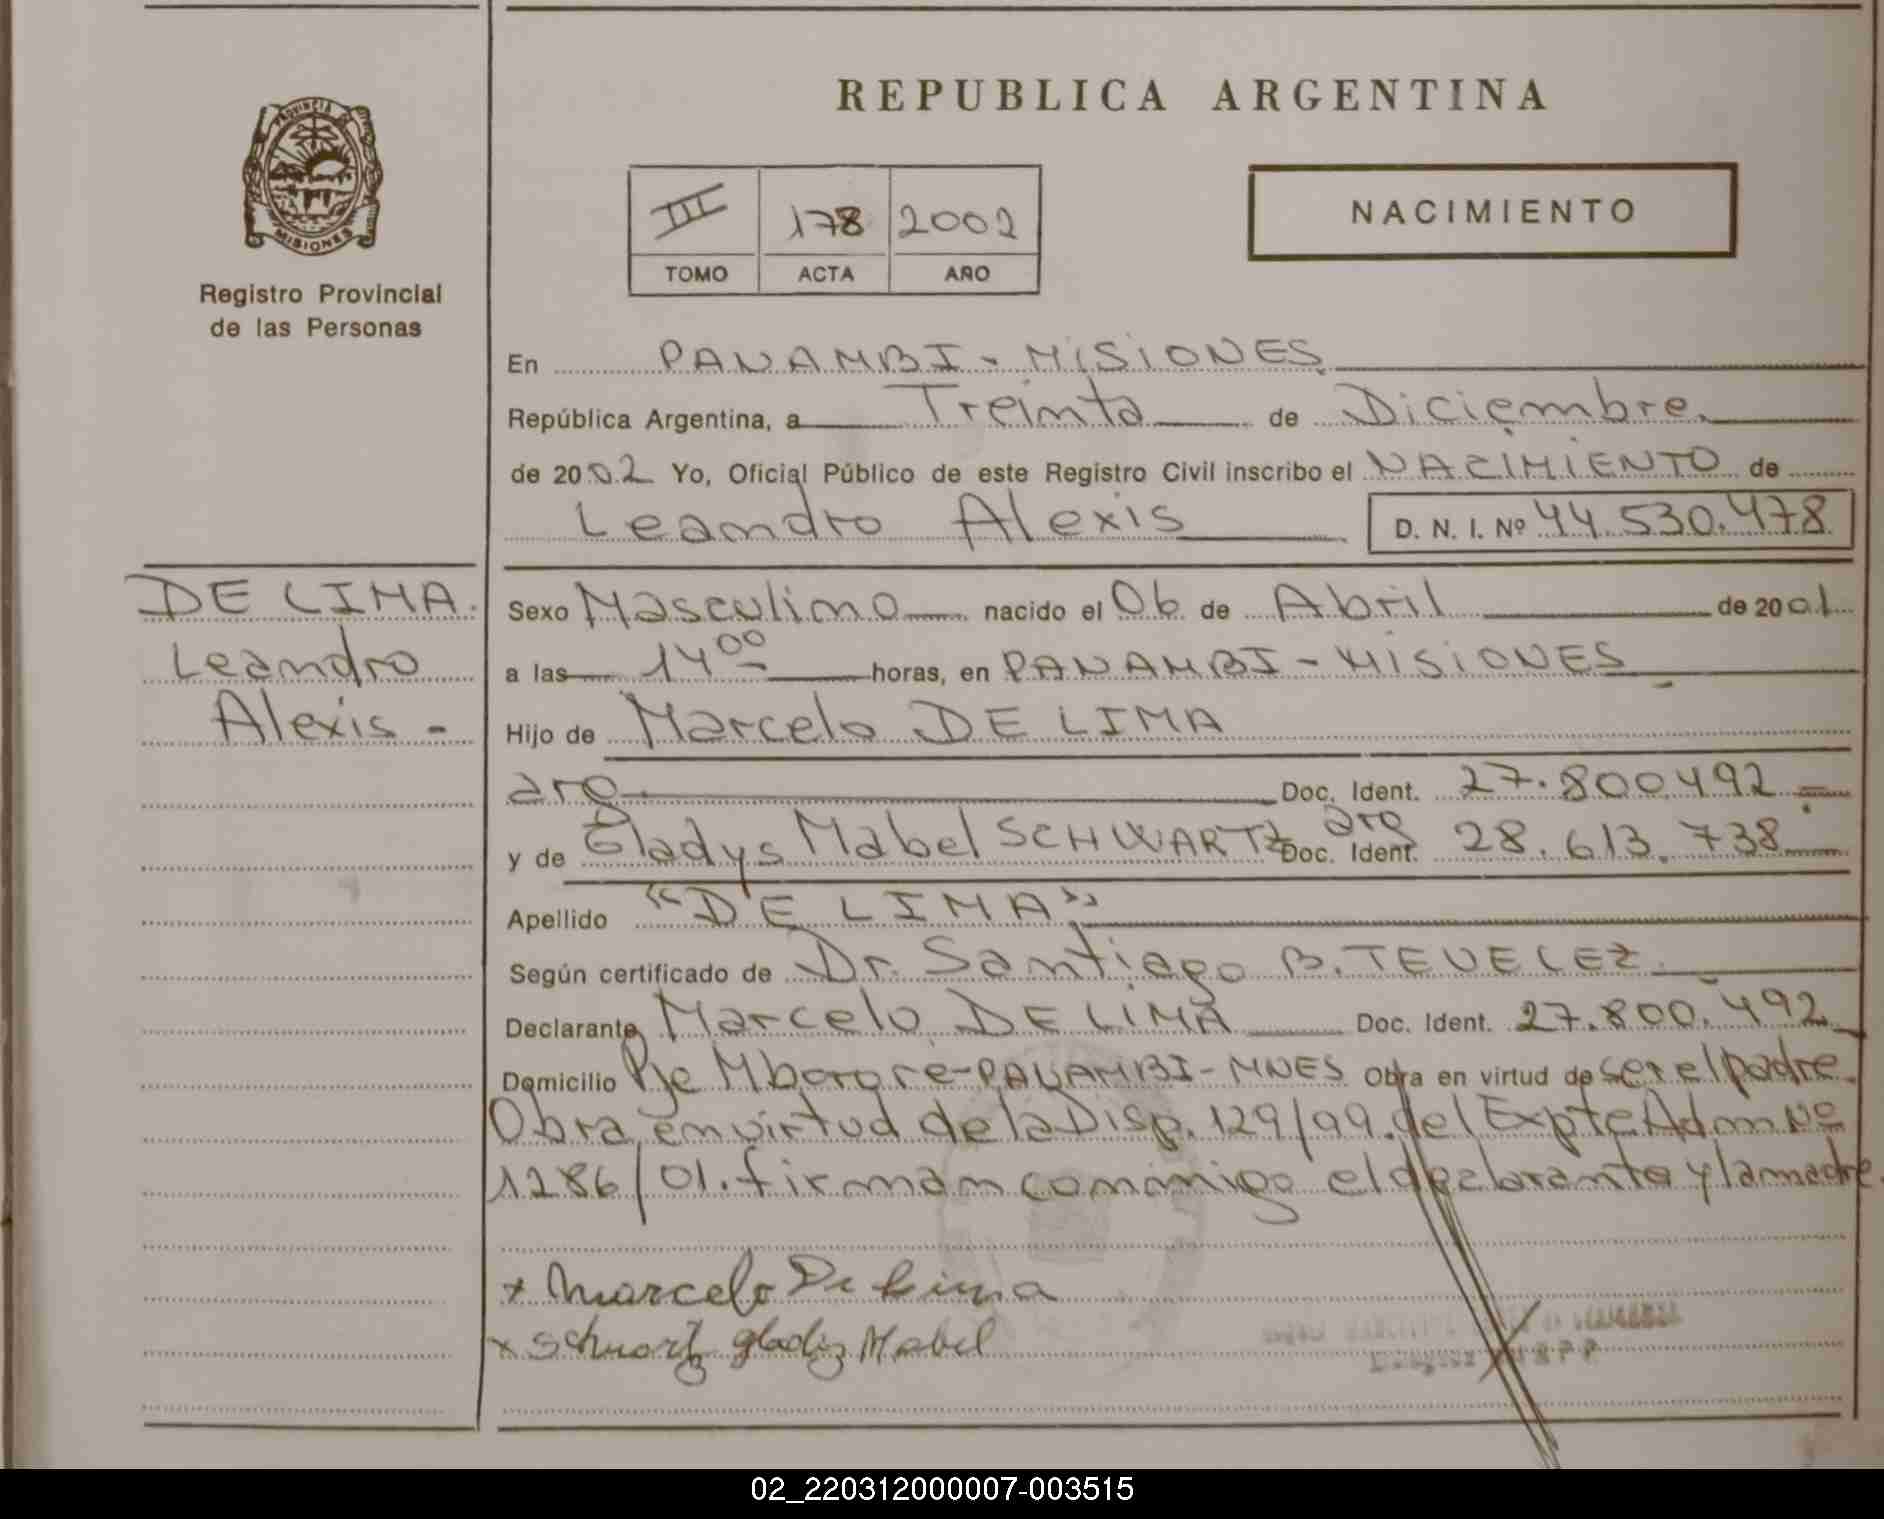 REPUBLICA ARGENTINA
PROVINCIA DE
MISIONES
Registro Provincial
de las Personas
III 178 2002
TOMO ACTA AÑO
NACIMIENTO
En PANAMBI - MISIONES
República Argentina, a Treinta de Diciembre.
de 2002 Yo, Oficial Público de este Registro Civil inscribo el NACIMIENTO de
Leandro Alexis D. N. I. Nº 44.530.478
DE LIMA.
Leandro
Alexis -
Sexo Masculino nacido el 06 de Abril de 2001
a las 14 00 horas, en PANAMBI - MISIONES
Hijo de Marcelo DE LIMA
arg Doc. Ident. 27.800.492
y de Gladys Mabel SCHWARTZ arg Doc. Ident. 28.613.738
Apellido "DE LIMA"
Según certificado de Dr. Santiago B. TEVELEZ
Declarante Marcelo DE LIMA Doc. Ident. 27.800.492
Domicilio Pje Mbororé-PANAMBI-MNES Obra en virtud de ser el padre.
Obra en virtud de la Disp. 129/99. del Expte Adm Nº
1286/01. firman conmigo el declarante y la madre.
x Marcelo De Lima
x Schwartz gladiz Mabel
02_220312000007-003515